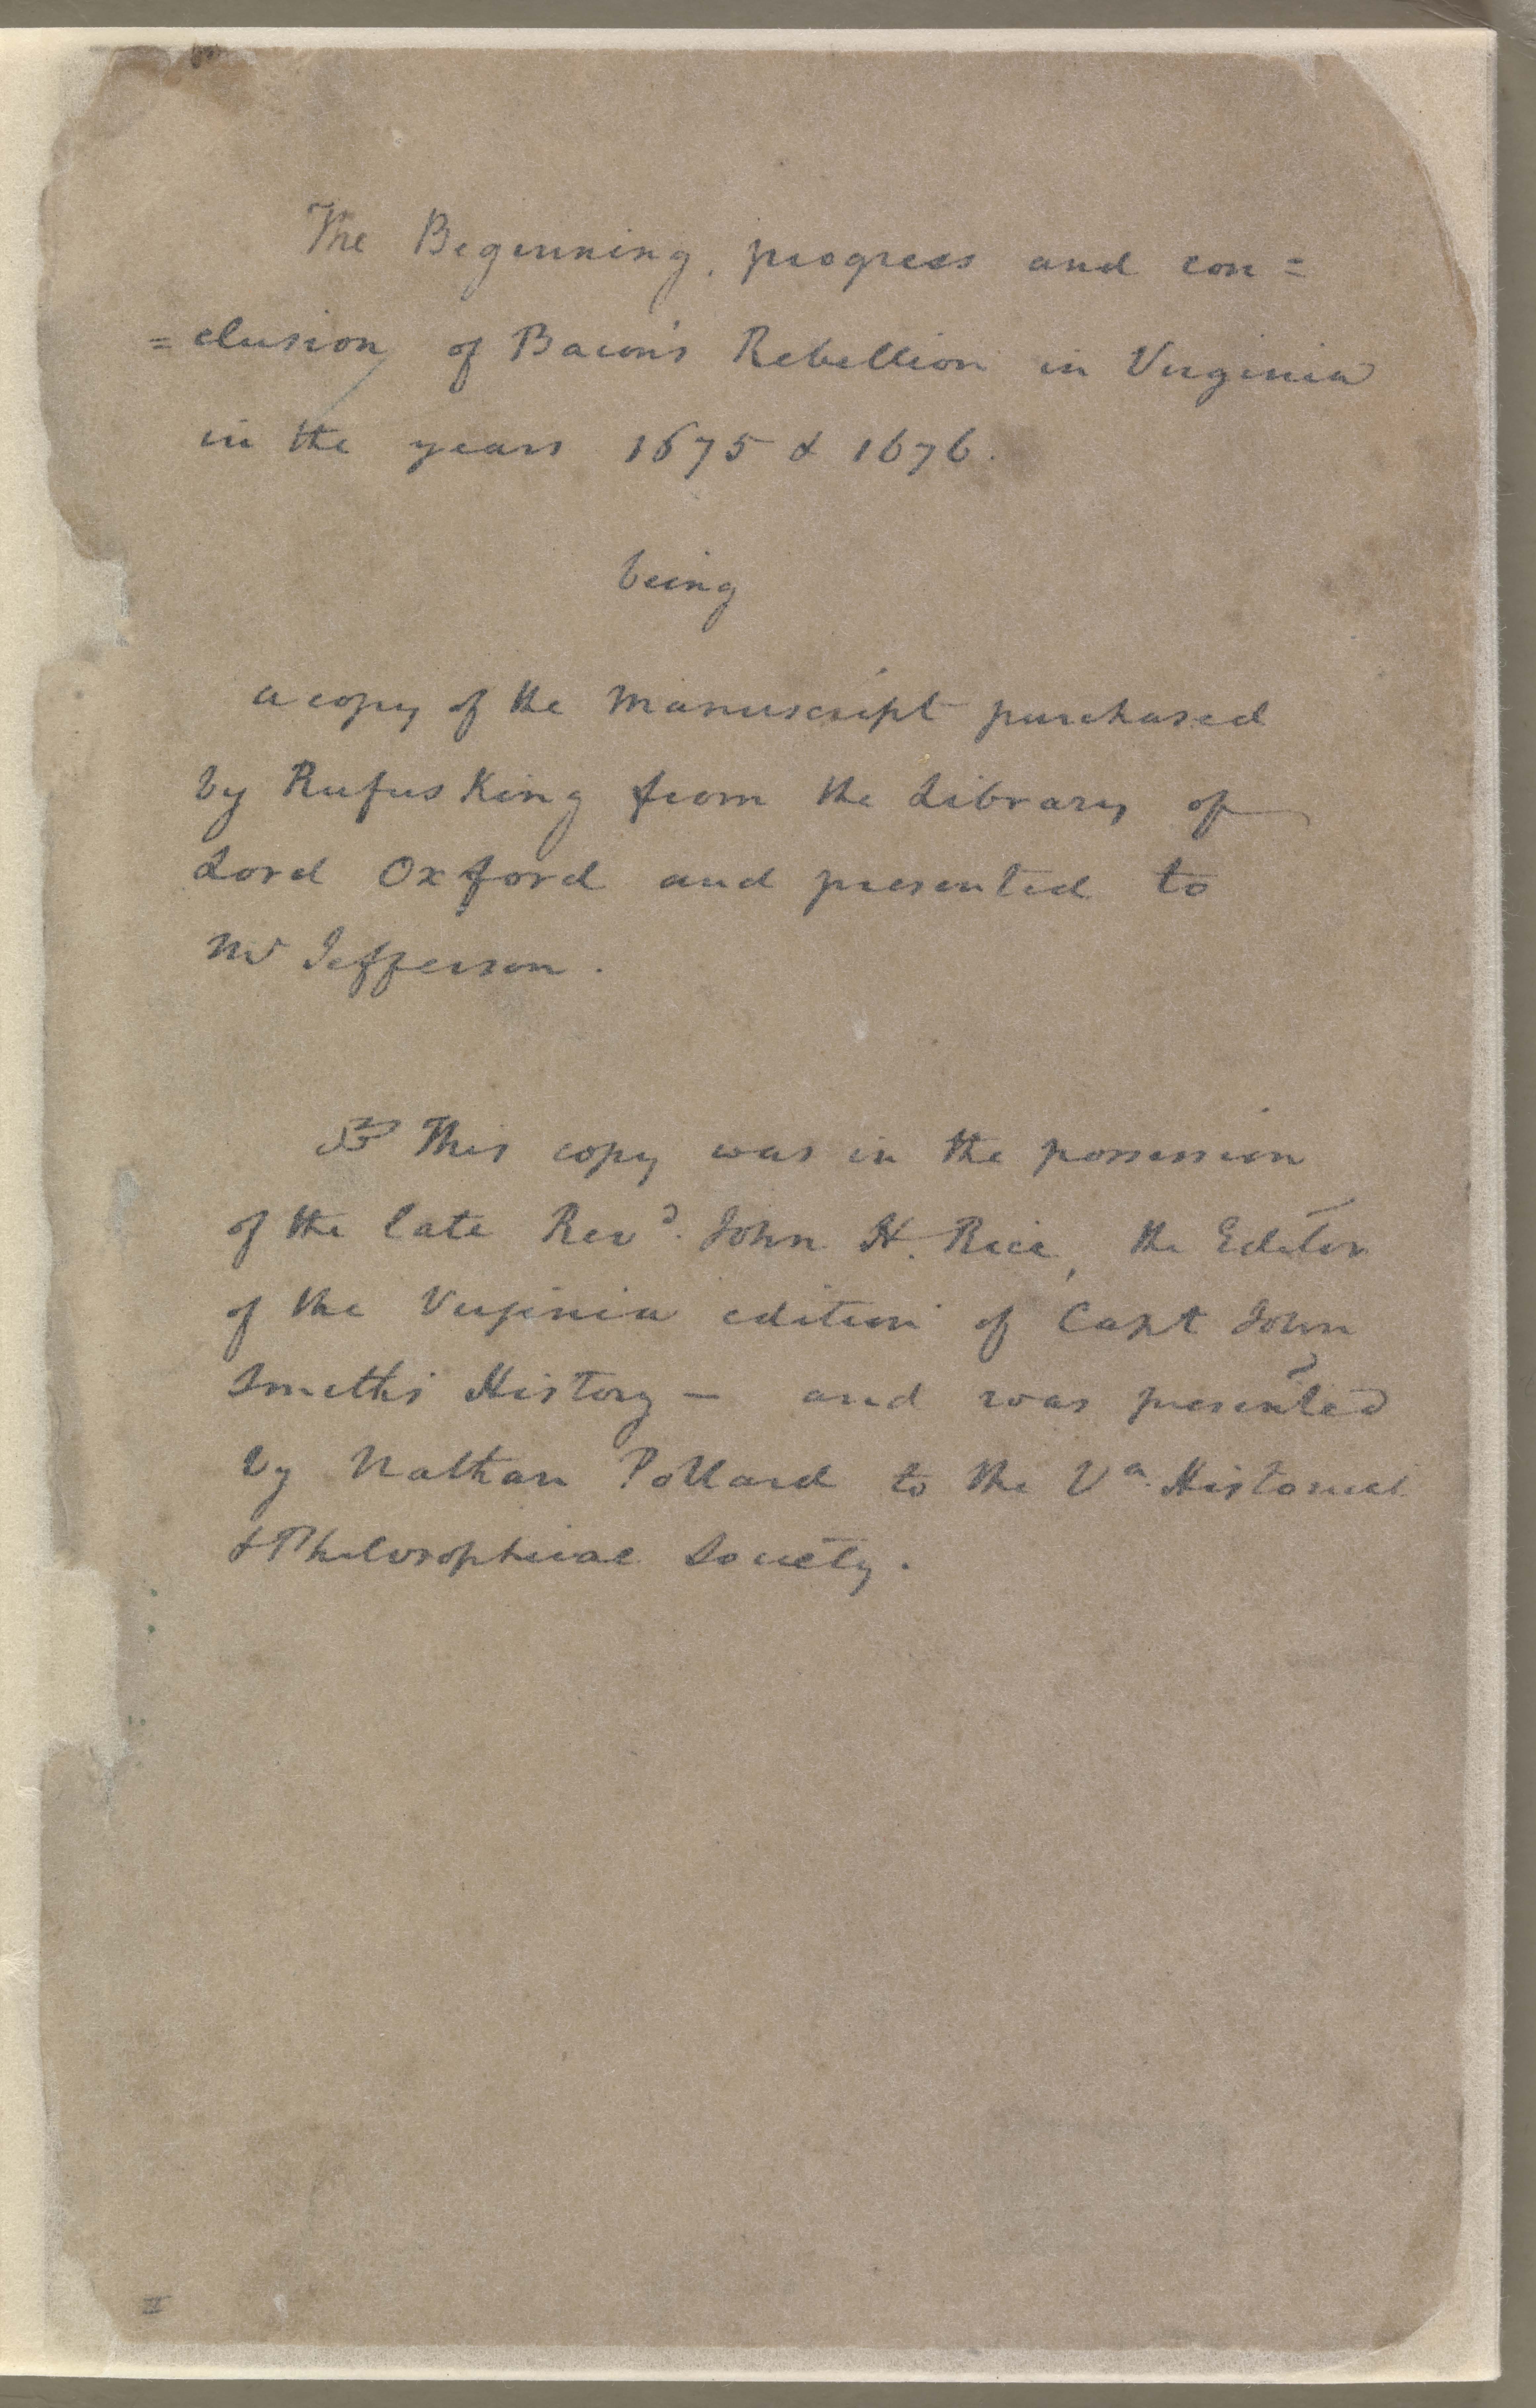 The Beginning, progress and con=
=clusion of Bacon's Rebellion in Virginia
in the years 1675 & 1676.
being
a copy of the Manuscript purchased
by Rufus King from the Library of
Lord Oxford and presented to
Mr Jefferson.
☞ This copy was in the possession
of the late Revd. John H. Rice, the Editor
of the Virginia edition of Capt John
Smith's History — and was presented
by Nathan Pollard to the Va. Historical
& Philosophical Society.
II